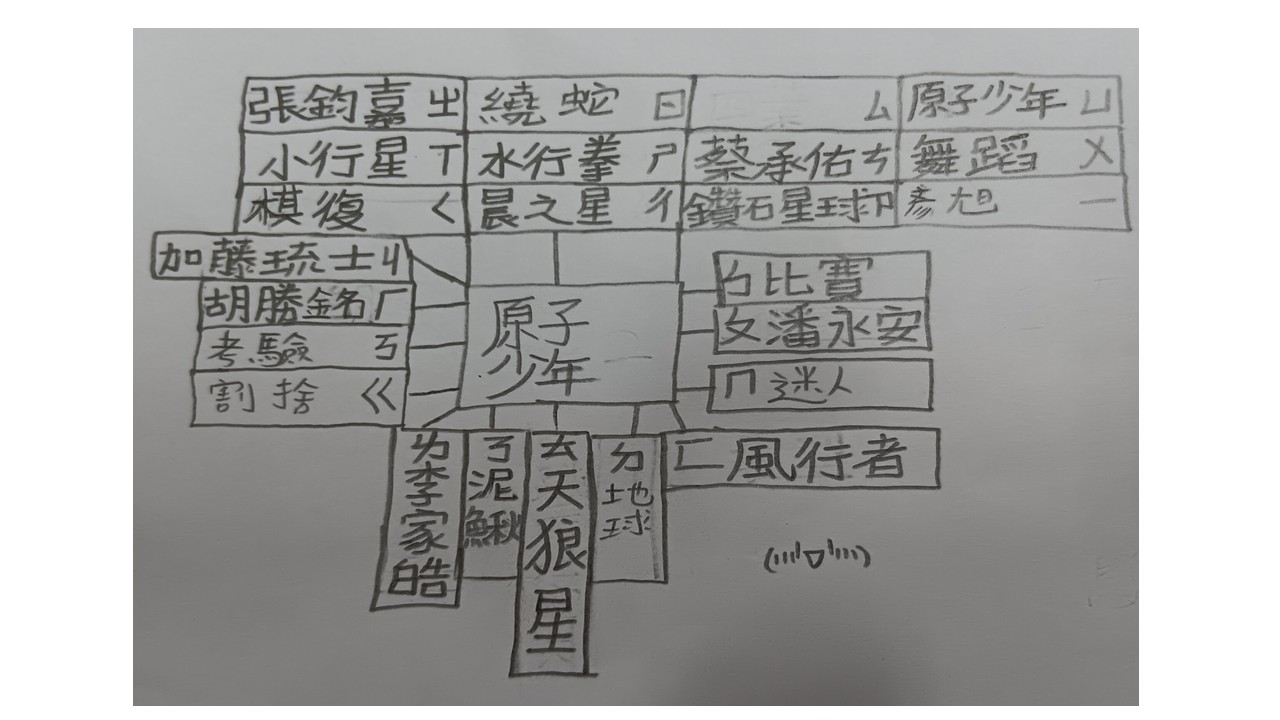 張鈞嘉 ㄓ
繞蛇 ㄖ
ㄙ
原子少年 ㄩ
小行星 ㄒ
水行拳 ㄕ
蔡承佑 ㄘ
舞蹈 ㄨ
棋復 ㄑ
晨之星 ㄔ
鑽石星球 ㄗ
彥旭 ㄧ
加藤琉士 ㄐ
胡勝銘 ㄏ
考驗 ㄎ
割捨 ㄍ
原子
少年
ㄅ比賽
ㄆ潘永安
ㄇ迷人
ㄌ李家皓
ㄋ泥鰍
ㄊ天狼星
ㄉ地球
ㄈ風行者